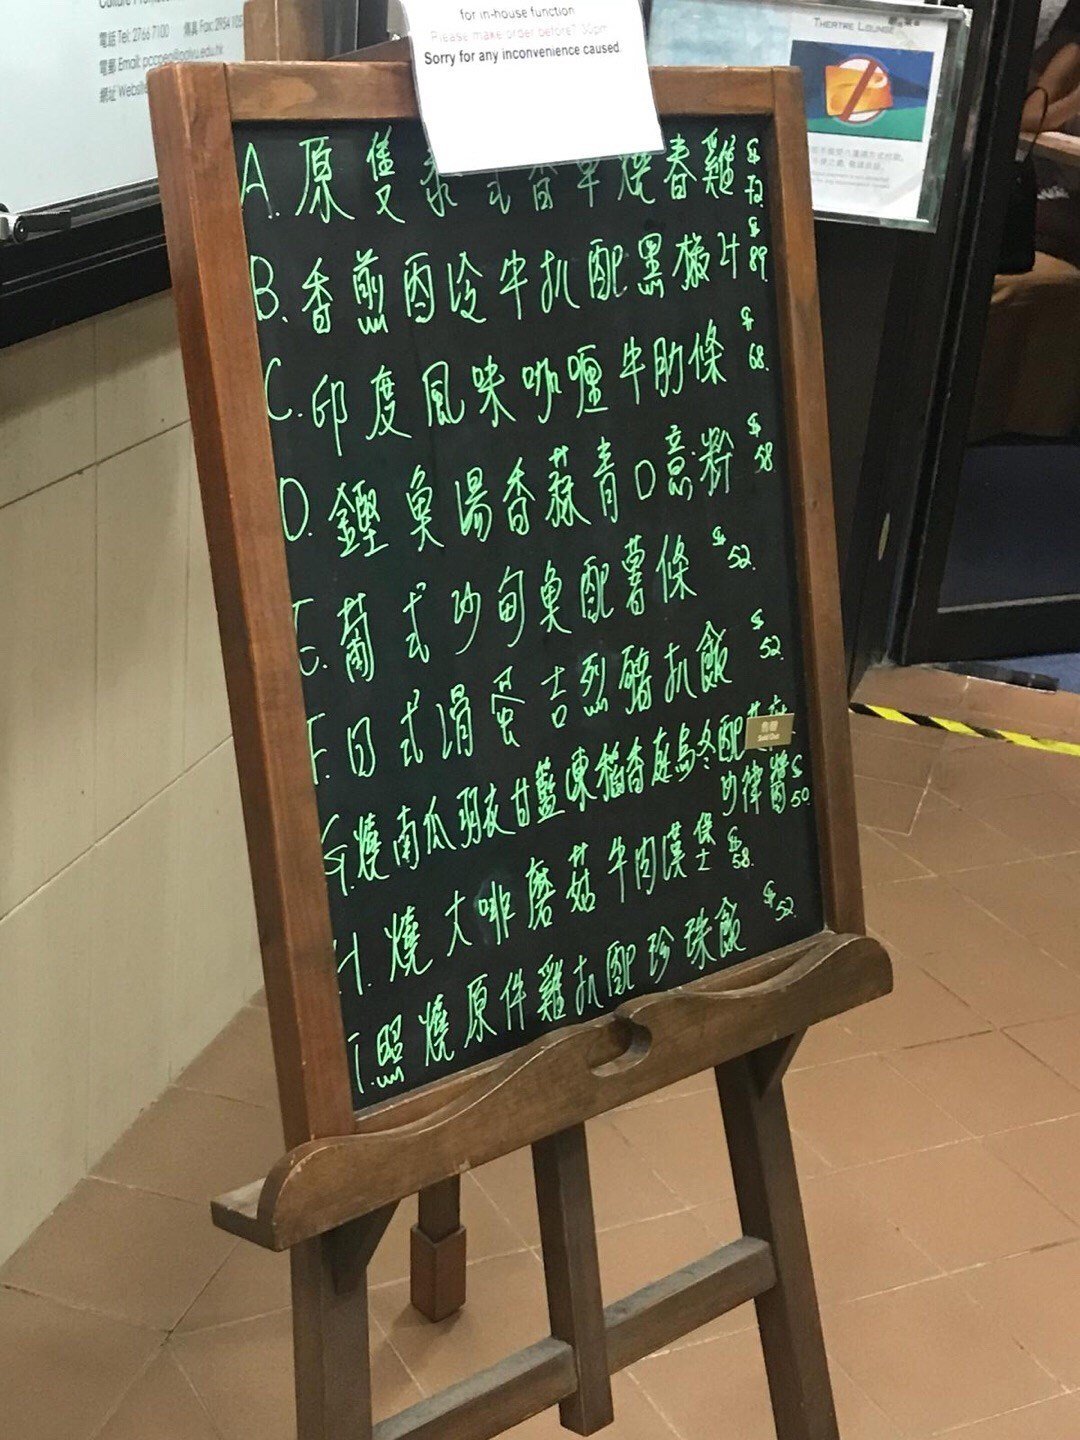 電話 Tel: 2766 7100 傳真 Fax: 2954 105
電郵 Email: pccpeo@polyu.edu.hk
網址 Website
for in-house function
Please make order before 7:30pm
Sorry for any inconvenience caused
THEATRE LOUNGE
A. 原隻泰式香草燒春雞 $72
B. 香煎西冷牛扒配黑椒汁 $89
C. 印度風味咖喱牛肋條 $68.
D. 鯹魚湯香蒜青口意粉 $58
E. 葡式沙甸魚配薯條 $52.
F. 日式滑蛋吉烈豬扒飯 $52.
G. 燒南瓜羽衣甘藍凍稻香庭烏冬配
沙律醬 $50
售罄
Sold Out
H. 燒大啡磨菇牛肉漢堡士 $58.
I. 照燒原件雞扒配珍珠飯 $52